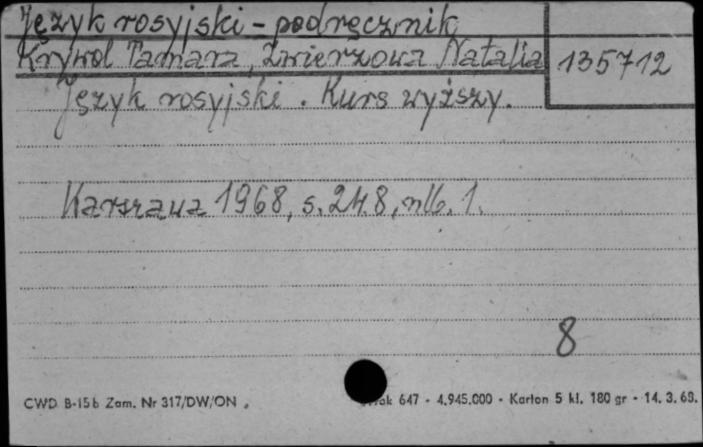 Język rosyjski - podręcznik
Krywol Tamara, Zwierzowa Natalia
135712
Język rosyjski. Kurs wyższy.
Warszawa 1968, s. 248, nlb. 1.
8
CWD B-15b Zam. Nr 317/DW/ON
647 - 4.945.000 - Karton 5 kl. 180 gr - 14. 3. 68.